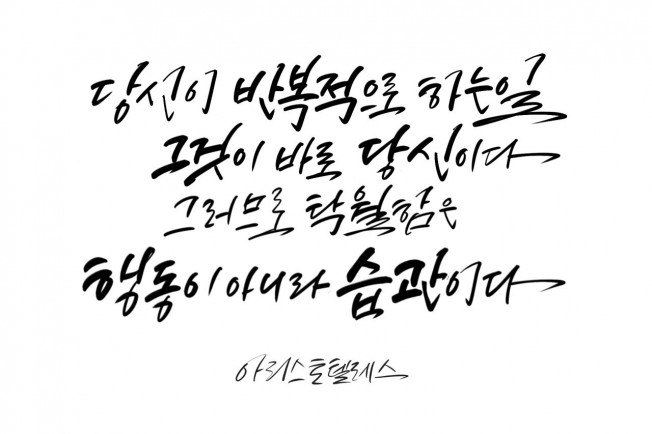 당신이 반복적으로 하는일
그것이 바로 당신이다
그러므로 탁월함은
행동이 아니라 습관이다
아리스토텔레스